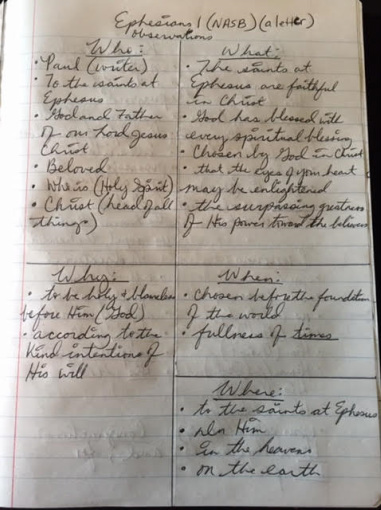 Ephesians 1 (NASB) (a letter)
Observations
Who:
• Paul (writer)
• To the saints at
Ephesus
• God and Father
of our Lord Jesus
Christ
• Beloved
• Who is (Holy Spirit)
• Christ (head of all
things)
What:
• The saints at
Ephesus are faithful
in Christ
• God has blessed with
every spiritual blessing
• Chosen by God in Christ
• that the eyes of your heart
may be enlightened
• the surpassing greatness
of His power toward the believers
Why:
• to be holy & blameless
before Him (God)
• according to the
kind intentions of
His will
When:
• chosen before the foundation
of the world
• fullness of times
Where:
• to the saints at Ephesus
• In Him
• In the heavens
• on the earth